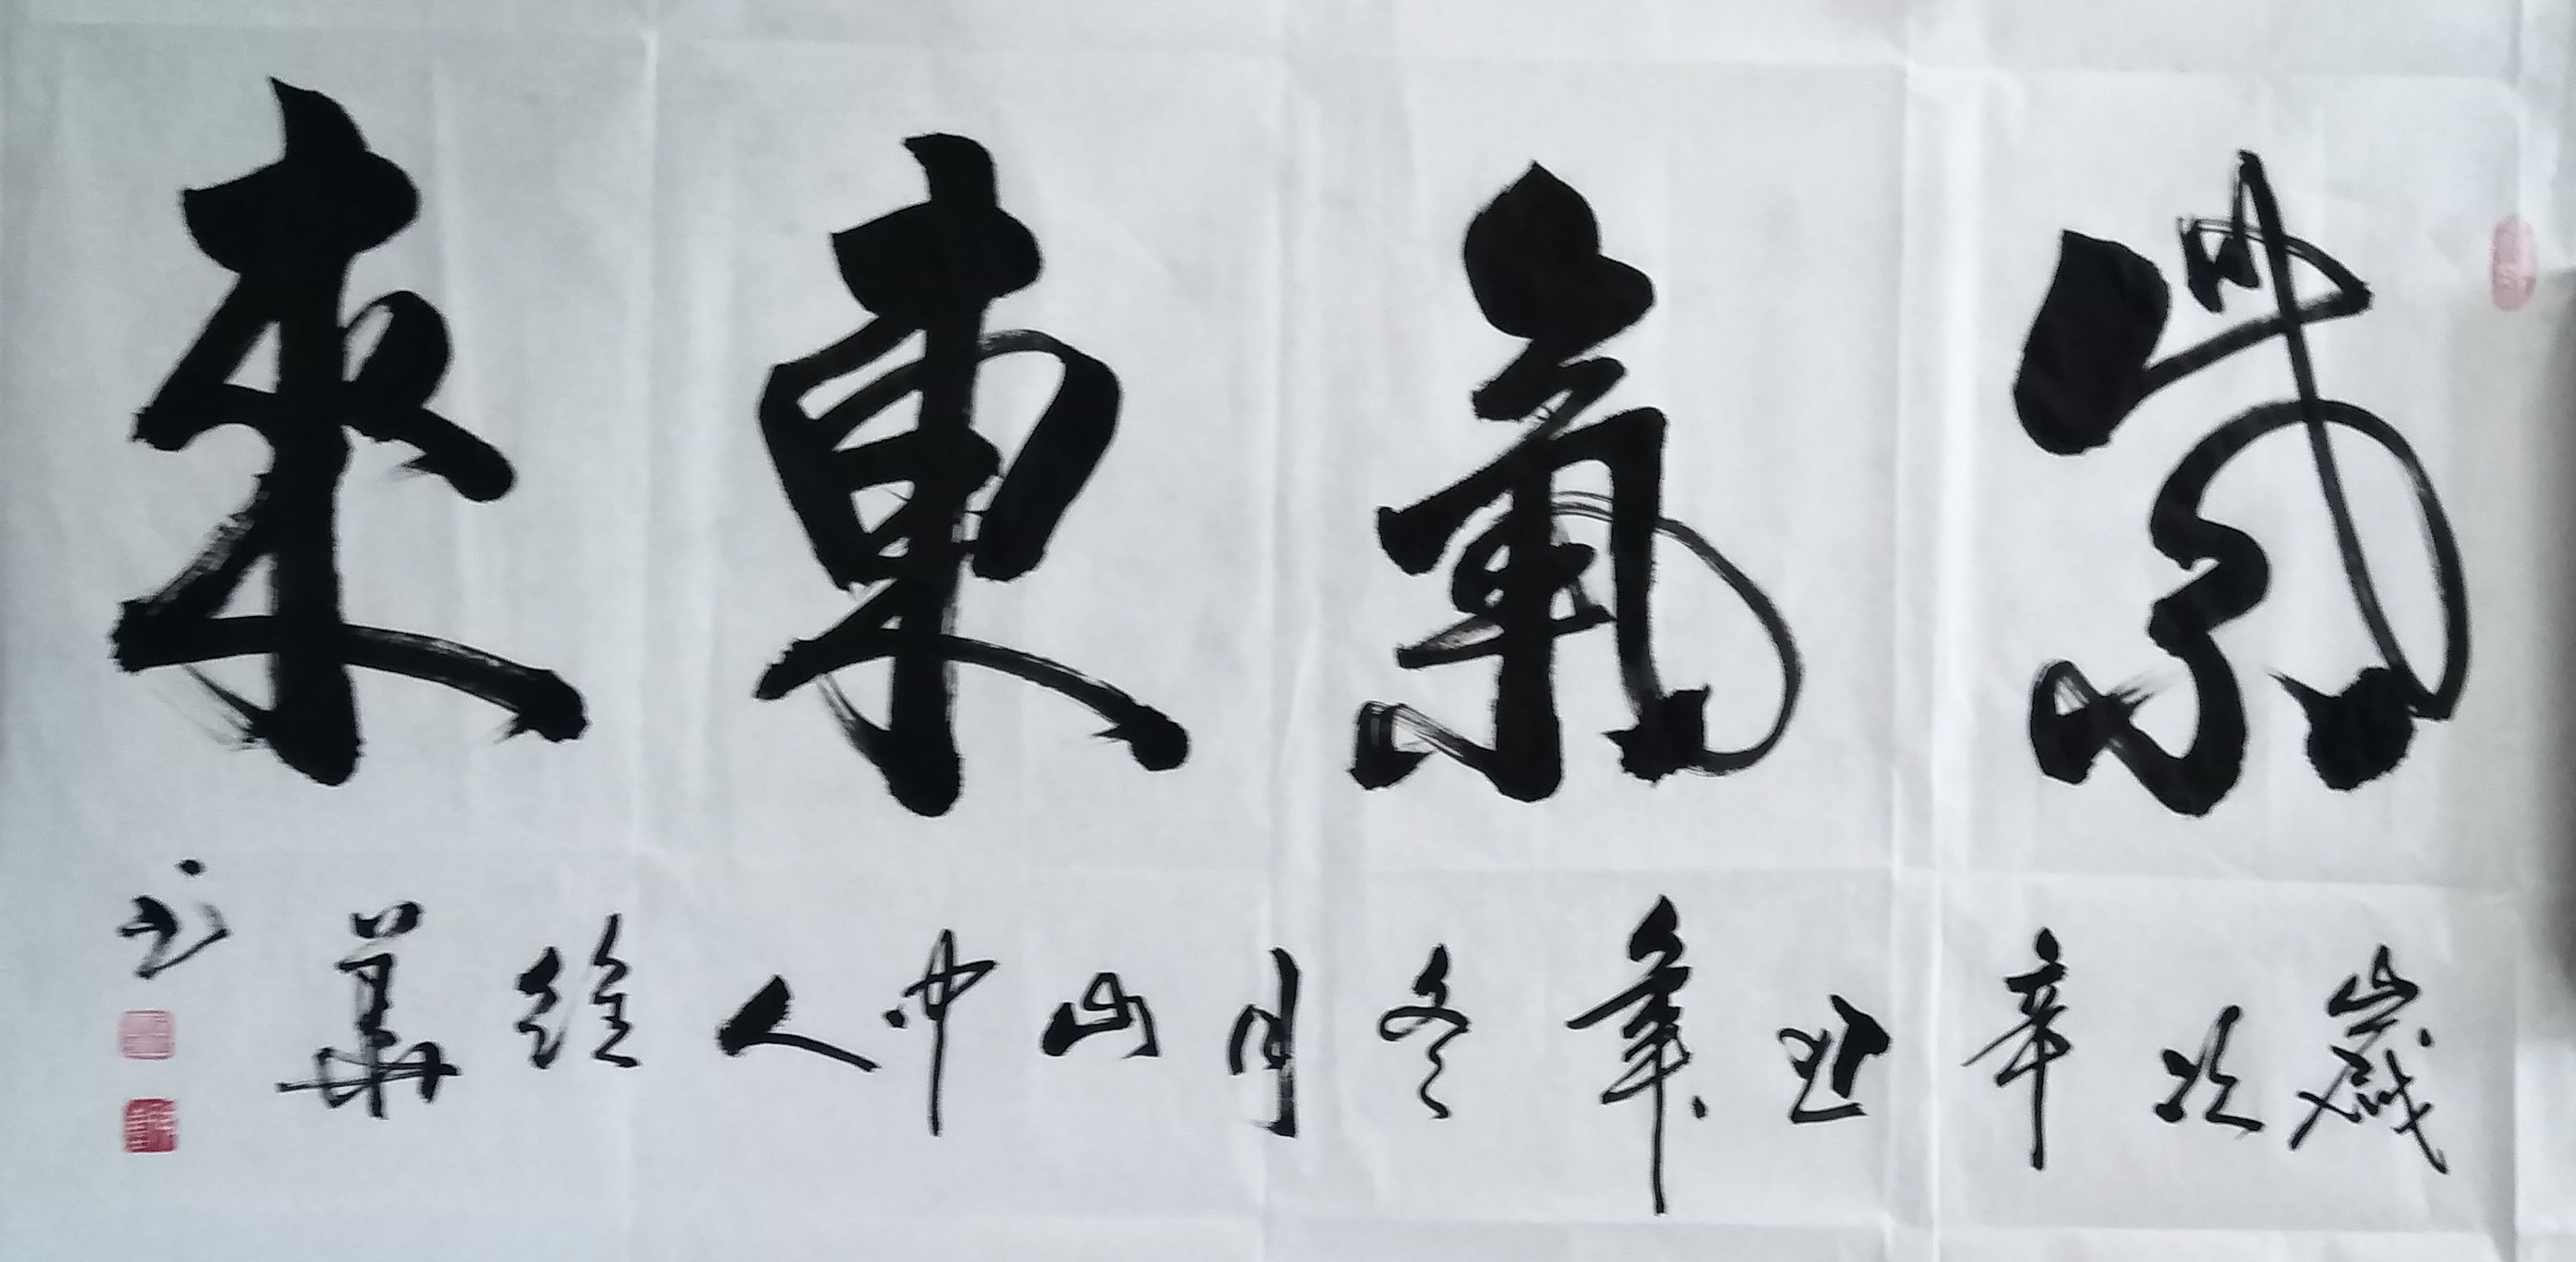 紫氣東來
歲次辛丑年冬月山中人維華书